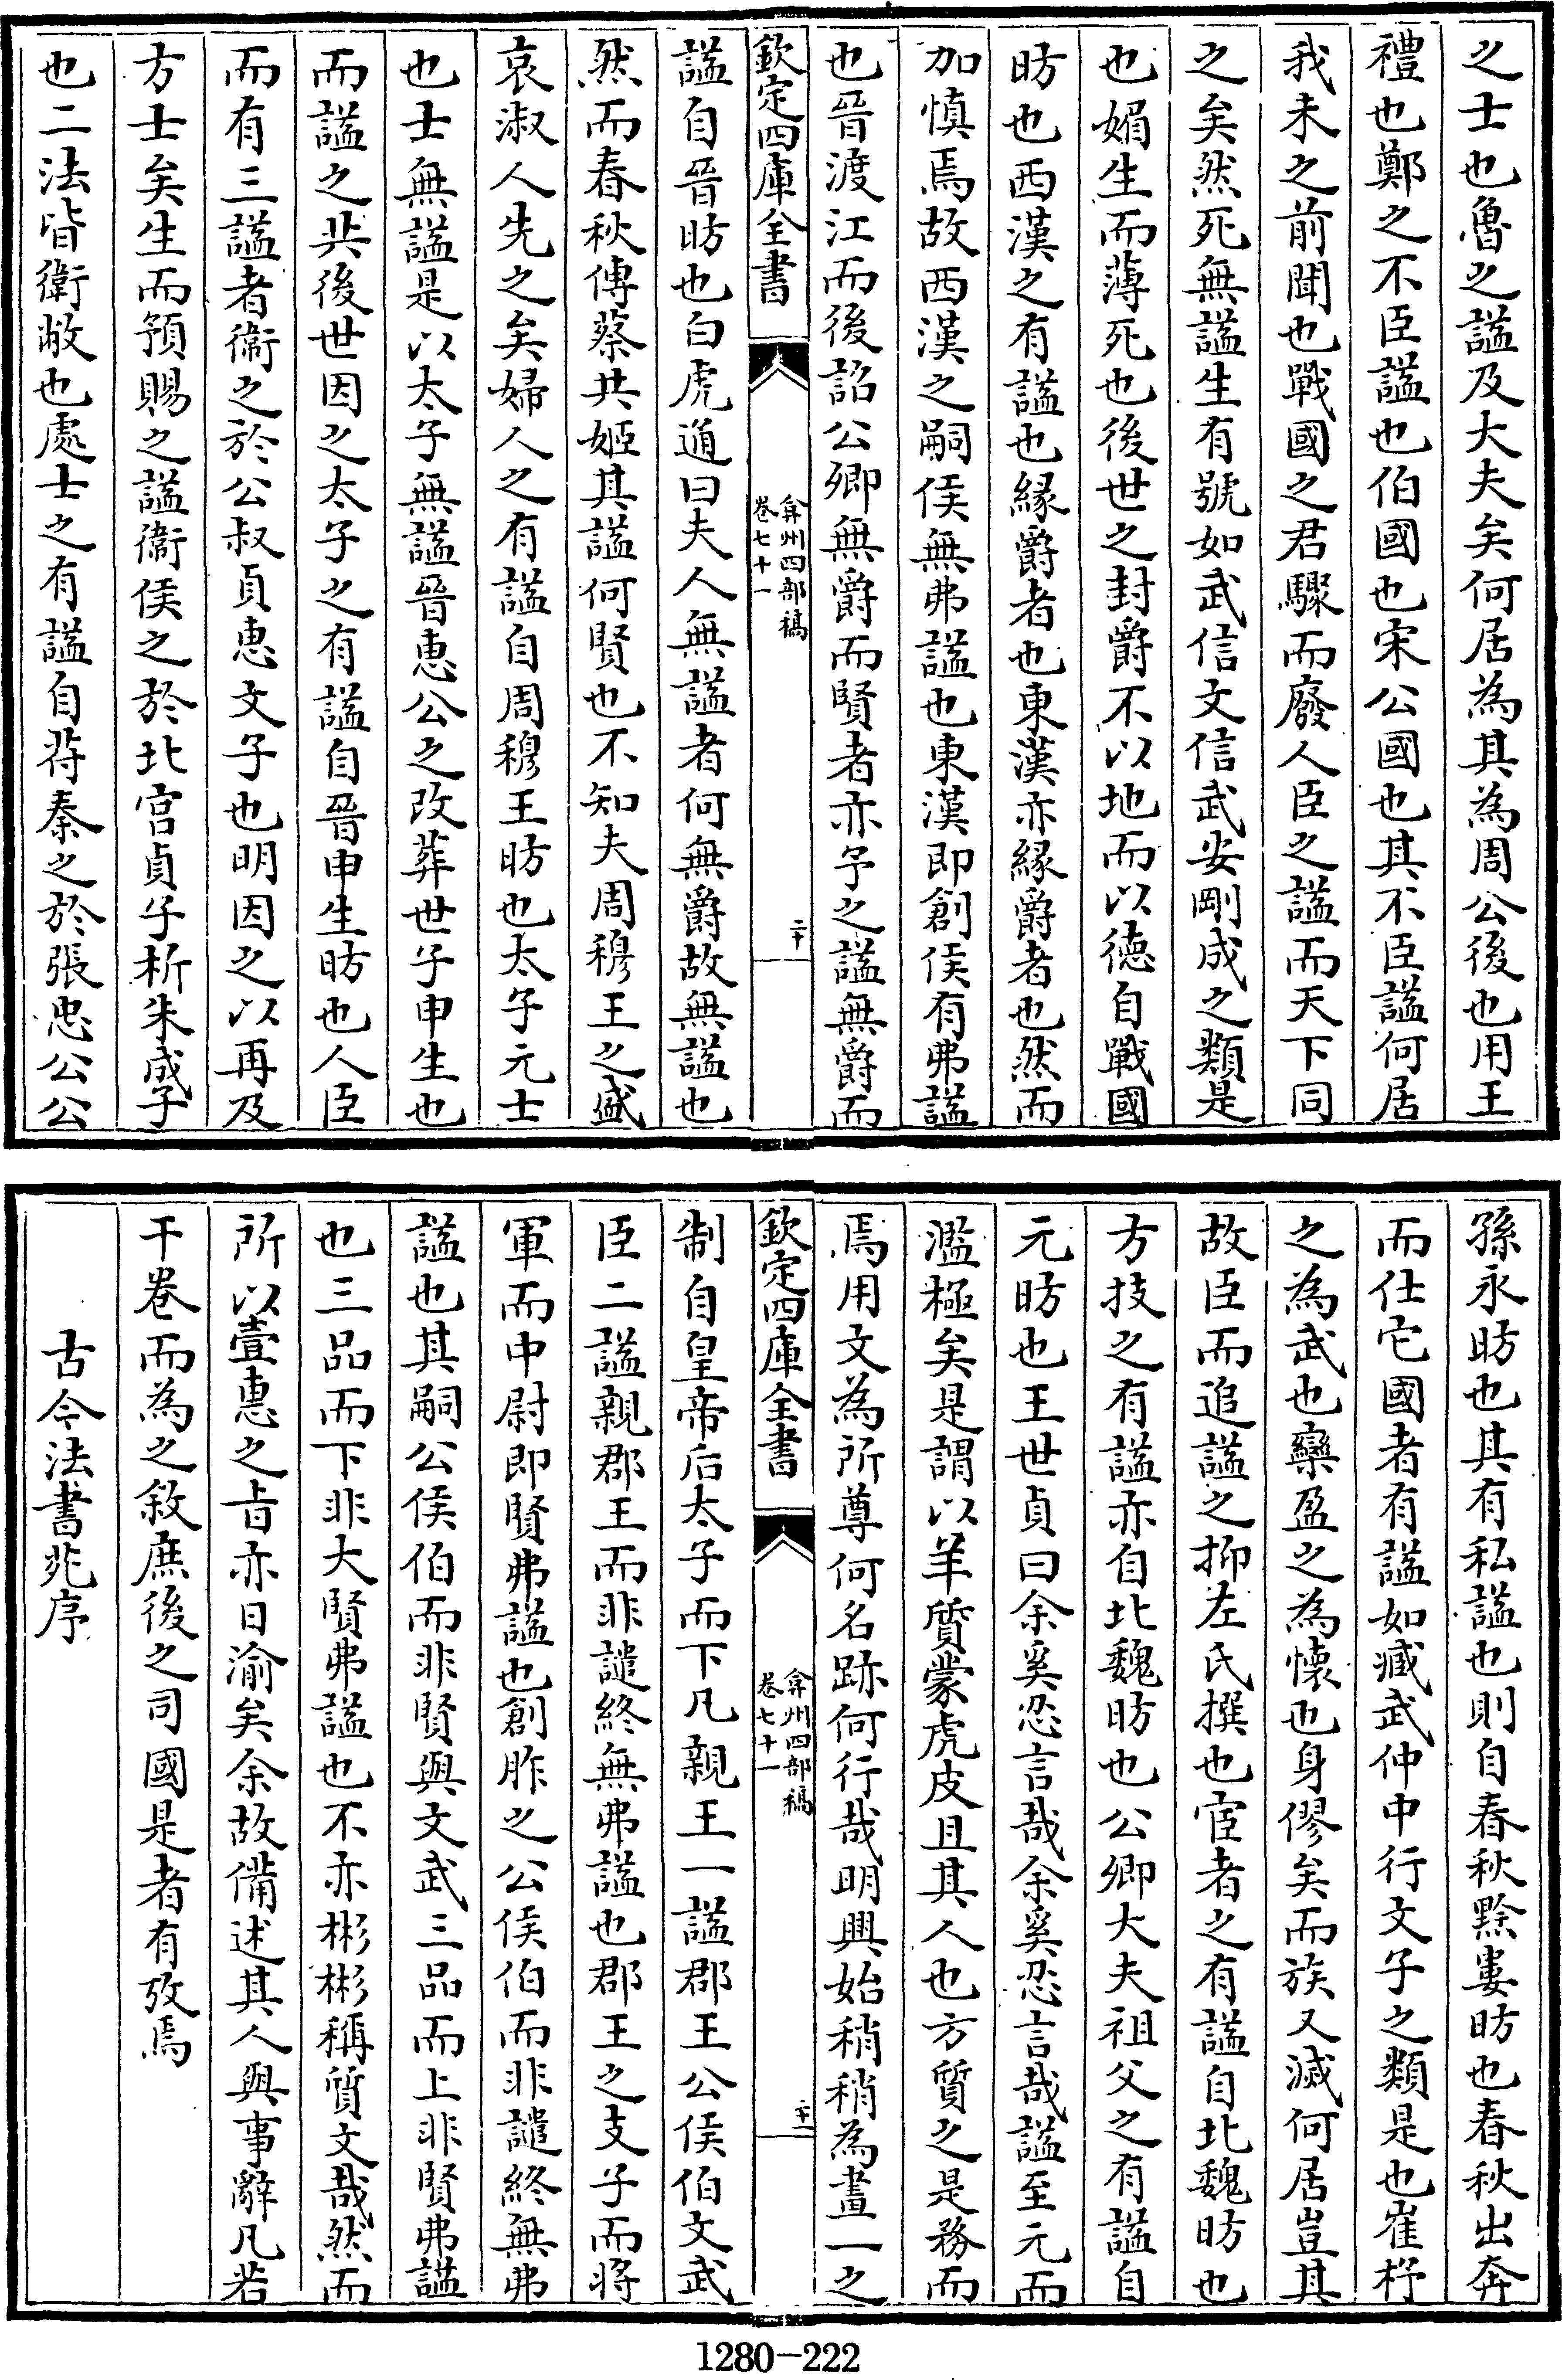 之士也魯之諡及大夫矣何居為其為周公後也用王
禮也鄭之不臣諡也伯國也宋公國也其不臣諡何居
我未之前聞也戰國之君驟而廢人臣之諡而天下同
之矣然死無諡生有號如武信文信武安剛成之類是
也媚生而薄死也後世之封爵不以地而以德自戰國
昉也西漢之有諡也緣爵者也東漢亦緣爵者也然而
加慎焉故西漢之嗣侯無弗諡也東漢即創侯有弗諡
也晉渡江而後詔公卿無爵而賢者亦予之諡無爵而
欽定四庫全書
弇州四部稿
卷七十一
二十
諡自晉昉也白虎通曰夫人無諡者何無爵故無諡也
然而春秋傳蔡共姬其諡何賢也不知夫周穆王之盛
哀淑人先之矣婦人之有諡自周穆王昉也太子元士
也士無諡是以太子無諡晉恵公之改葬世子申生也
而諡之共後世因之太子之有諡自晉申生昉也人臣
而有三諡者衞之於公叔貞恵文子也明因之以再及
方士矣生而預賜之諡衞侯之於北宫貞子析朱成子
也二法皆衛敝也處士之有諡自苻秦之於張忠公公
孫永昉也其有私諡也則自春秋黔婁昉也春秋出奔
而仕它國者有諡如臧武仲中行文子之類是也崔杼
之為武也欒盈之為懷也身僇矣而族又滅何居豈其
故臣而追諡之抑左氏撰也宦者之有諡自北魏昉也
方技之有諡亦自北魏昉也公卿大夫祖父之有諡自
元昉也王世貞曰余奚忍言哉余奚忍言哉諡至元而
濫極矣是謂以羊質蒙虎皮且其人也方質之是務而
焉用文為所尊何名跡何行哉明興始稍稍為畫一之
欽定四庫全書
弇州四部稿
卷七十一
二十一
制自皇帝后太子而下凡親王一諡郡王公侯伯文武
臣二諡親郡王而非譴終無弗諡也郡王之支子而將
軍而中尉即賢弗諡也創胙之公侯伯而非譴終無弗
諡也其嗣公侯伯而非賢與文武三品而上非賢弗諡
也三品而下非大賢弗諡也不亦彬彬稱質文哉然而
所以壹惠之㫖亦日渝矣余故備述其人與事辭凡若
干卷而為之敘庶後之司國是者有攷焉
古今法書苑序
1280-222